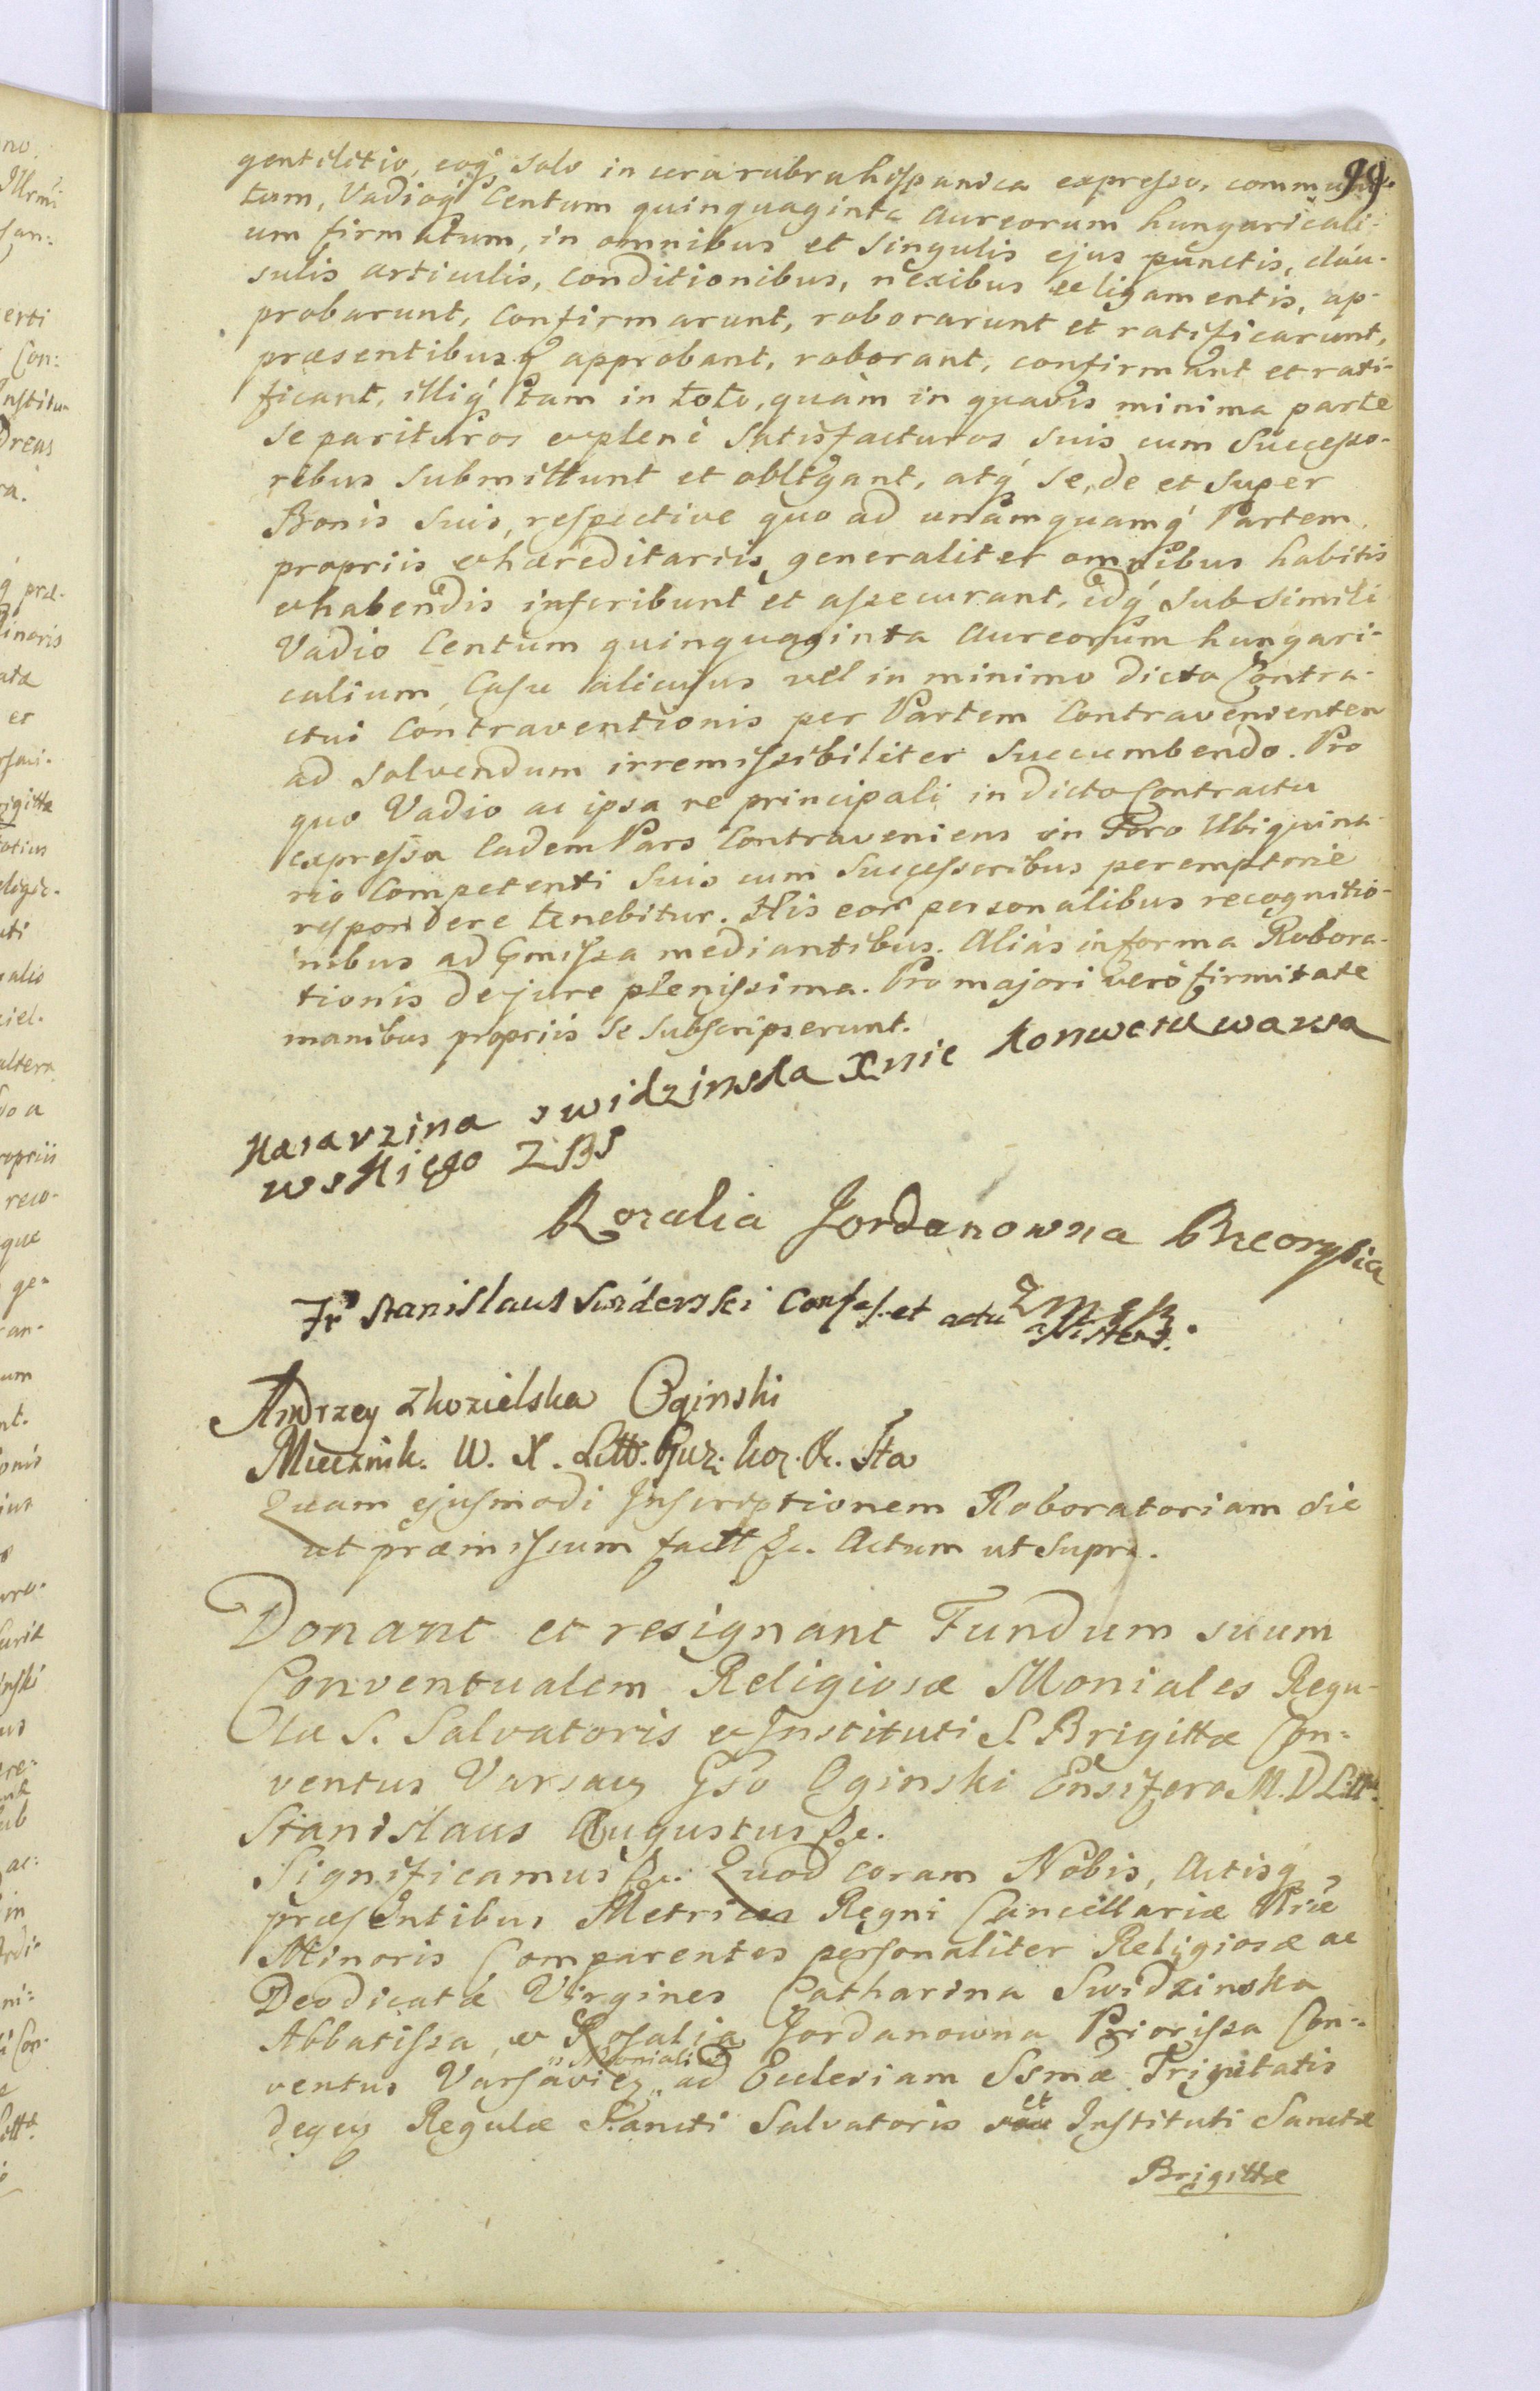 99
gentilitio, eoq́ solo in cera rubra hispanica expresso, communi-
tum, Vadioq́ Centum quinquaginta Aureorum hungaricali-
um firmatum, in omnibus et singulis ejus punctis, clau-
sulis articulis, conditionibus, nexibus et ligamentis, ap-
probarunt, Confirmarunt, roborarunt et ratificarunt,
præsentibusq́ approbant, roborant, confirmant et rati-
ficant, illiq́ tam in toto, quàm in quavis minima parte
se parituros et plenè satisfacturos suis cum Successo-
ribus submittunt et obligant, atq́ se, de et super
Bonis suis, respective quo ad unamquamq́ Partem
propriis et hæreditariis, generaliter omnibus habitis
et habendis inscribunt et assecurant, idq́ sub simili
Vadio Centum quinquaginta Aureorum hungari-
calium, Casu alicujus vel in minimo dicto Contra-
ctui Contraventionis per Partem Contravenientem
ad solvendum irremissibiliter succumbendo. Pro
quo Vadio ac ipsa re principali in dicto Contractu
expressa Eadem Pars Contraveniens in Foro Ubiquina-
rio Competenti suis cum Successoribus peremptorie
respondere tenebitur. His eor personalibus recognitio-
nibus ad p̃missa mediantibus. Aliàs in forma Robora-
tionis de jure plenissima. Pro majori verò firmitate
manibus propriis se subscripserunt.
Katarzina swidzinska Xnie Konwetu warsza
wskiego ZBS
Rozalia Jordanowna Przeorysza
Fr Stanislaus Swiderski Confes. et actu
assistens.
Andrzey Zkozielska Oginski
Miecznik. W. X. Litt. Guz. Koz. &. Sta
Quam ejusmodi Inscriptionem Roboratoriam sic
ut præmissum factt &c. Actum ut supra.
Donant et resignant Fundum suum
Conventualem Religiosæ Moniales Regu-
læ S. Salvatoris et Instituti S. Brigittæ Con-
ventus Varsaẽ Gso Oginski Ensifero M. D. Litt.
Stanislaus Augustus &c.
Significamus &c. Quod coram Nobis, Actisq́
præsentibus Metrices Regni Cancellariæ Priæ
Minoris Comparentes personaliter Religiosæ ac
Deodicatæ Virgines Catharina Swidzinska
Abbatissa, et Rosalia Jordanowna Priorissa Con-
ventus Varsavieñ "Monialium" ad Ecclesiam Ssmæ Trinitatis
degeñ Regulæ Sancti Salvatoris et Instituti Sanctæ
Brigittæ